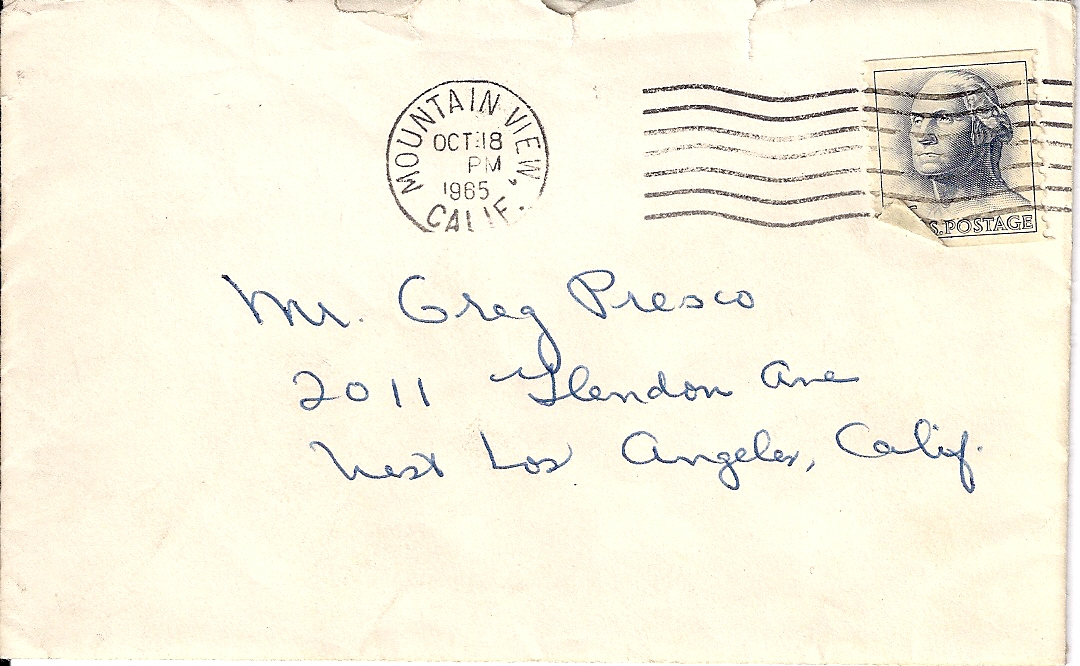 MOUNTAIN VIEW, CALIF.
OCT 18
PM
1965
S. POSTAGE
Mr. Greg Presco
2011 Glendon Ave
West Los Angeles, Calif.